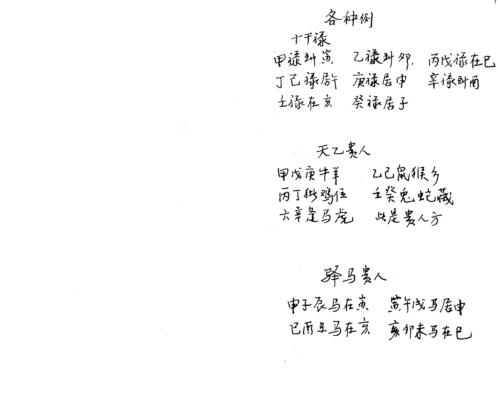 各种例
十干禄
甲禄到寅 乙禄到卯. 丙戊禄在巳
丁己禄居午 庚禄居申 辛禄到酉
壬禄在亥 癸禄居子
天乙贵人
甲戊庚牛羊 乙己鼠猴乡
丙丁猪鸡位 壬癸兔蛇藏
六辛逢马虎 此是贵人方
驿马贵人
申子辰马在寅 寅午戌马居申
巳酉丑马在亥 亥卯未马在巳